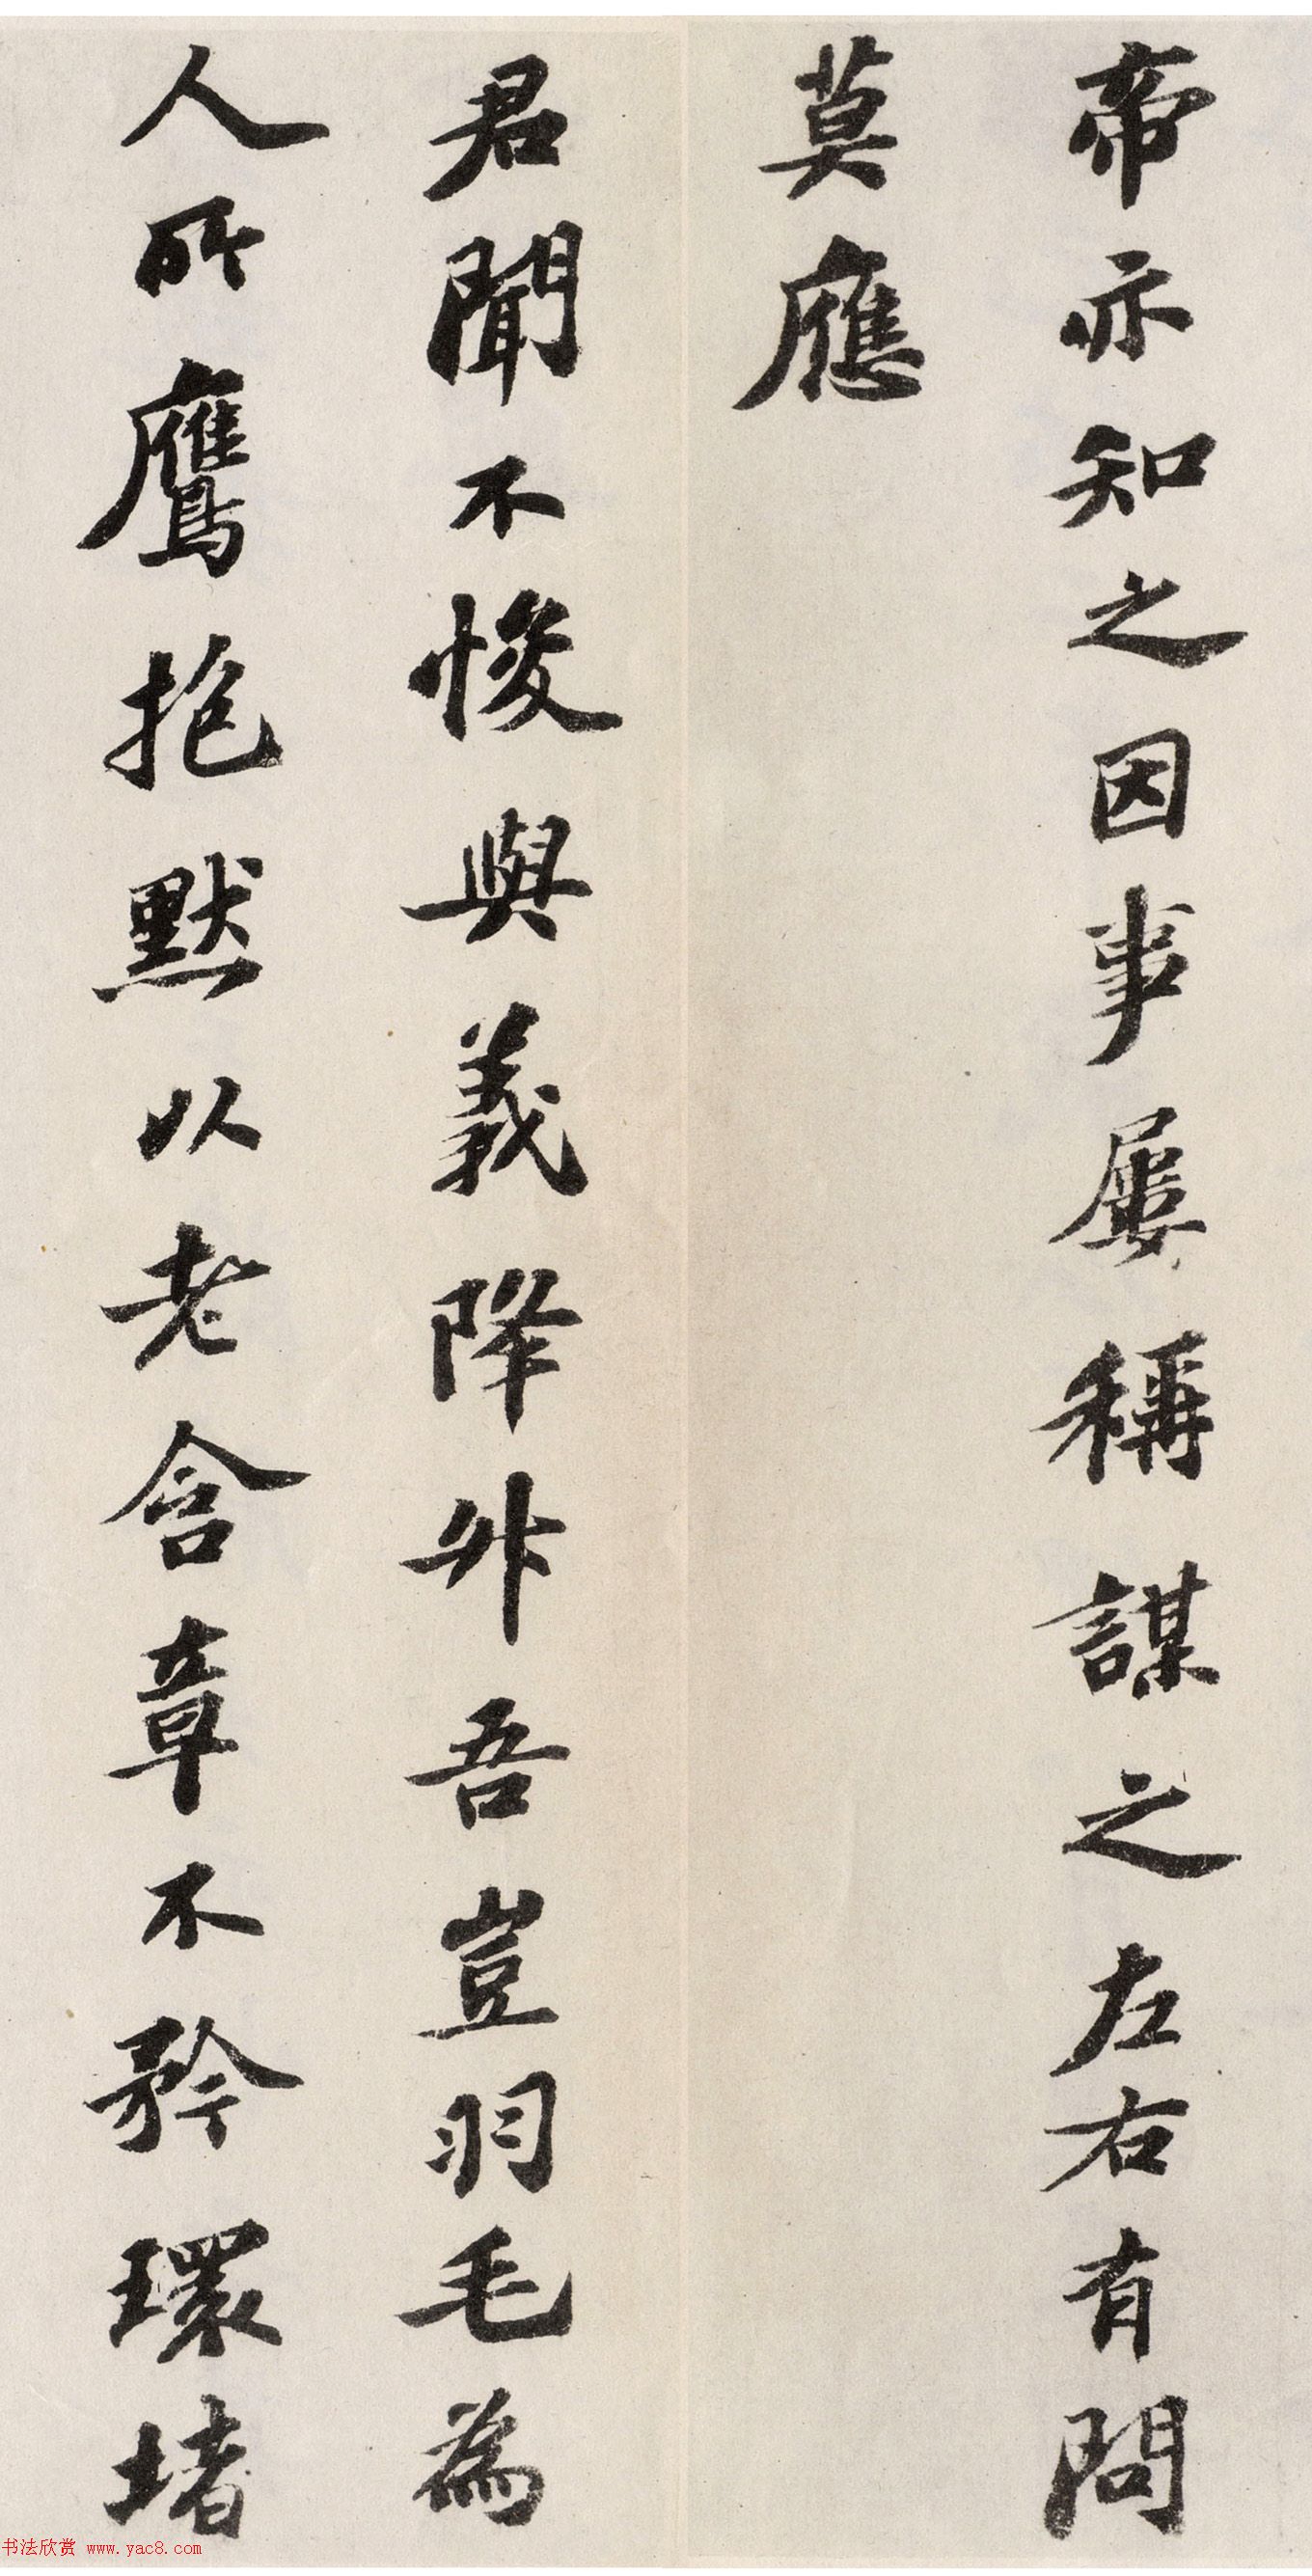 帝亦知之因事屢稱謀之左右有問
莫應
君聞不悛與義降升吾豈羽毛為
人所鷹抱默以老含章不矜環堵
书法欣赏 www.yac8.com